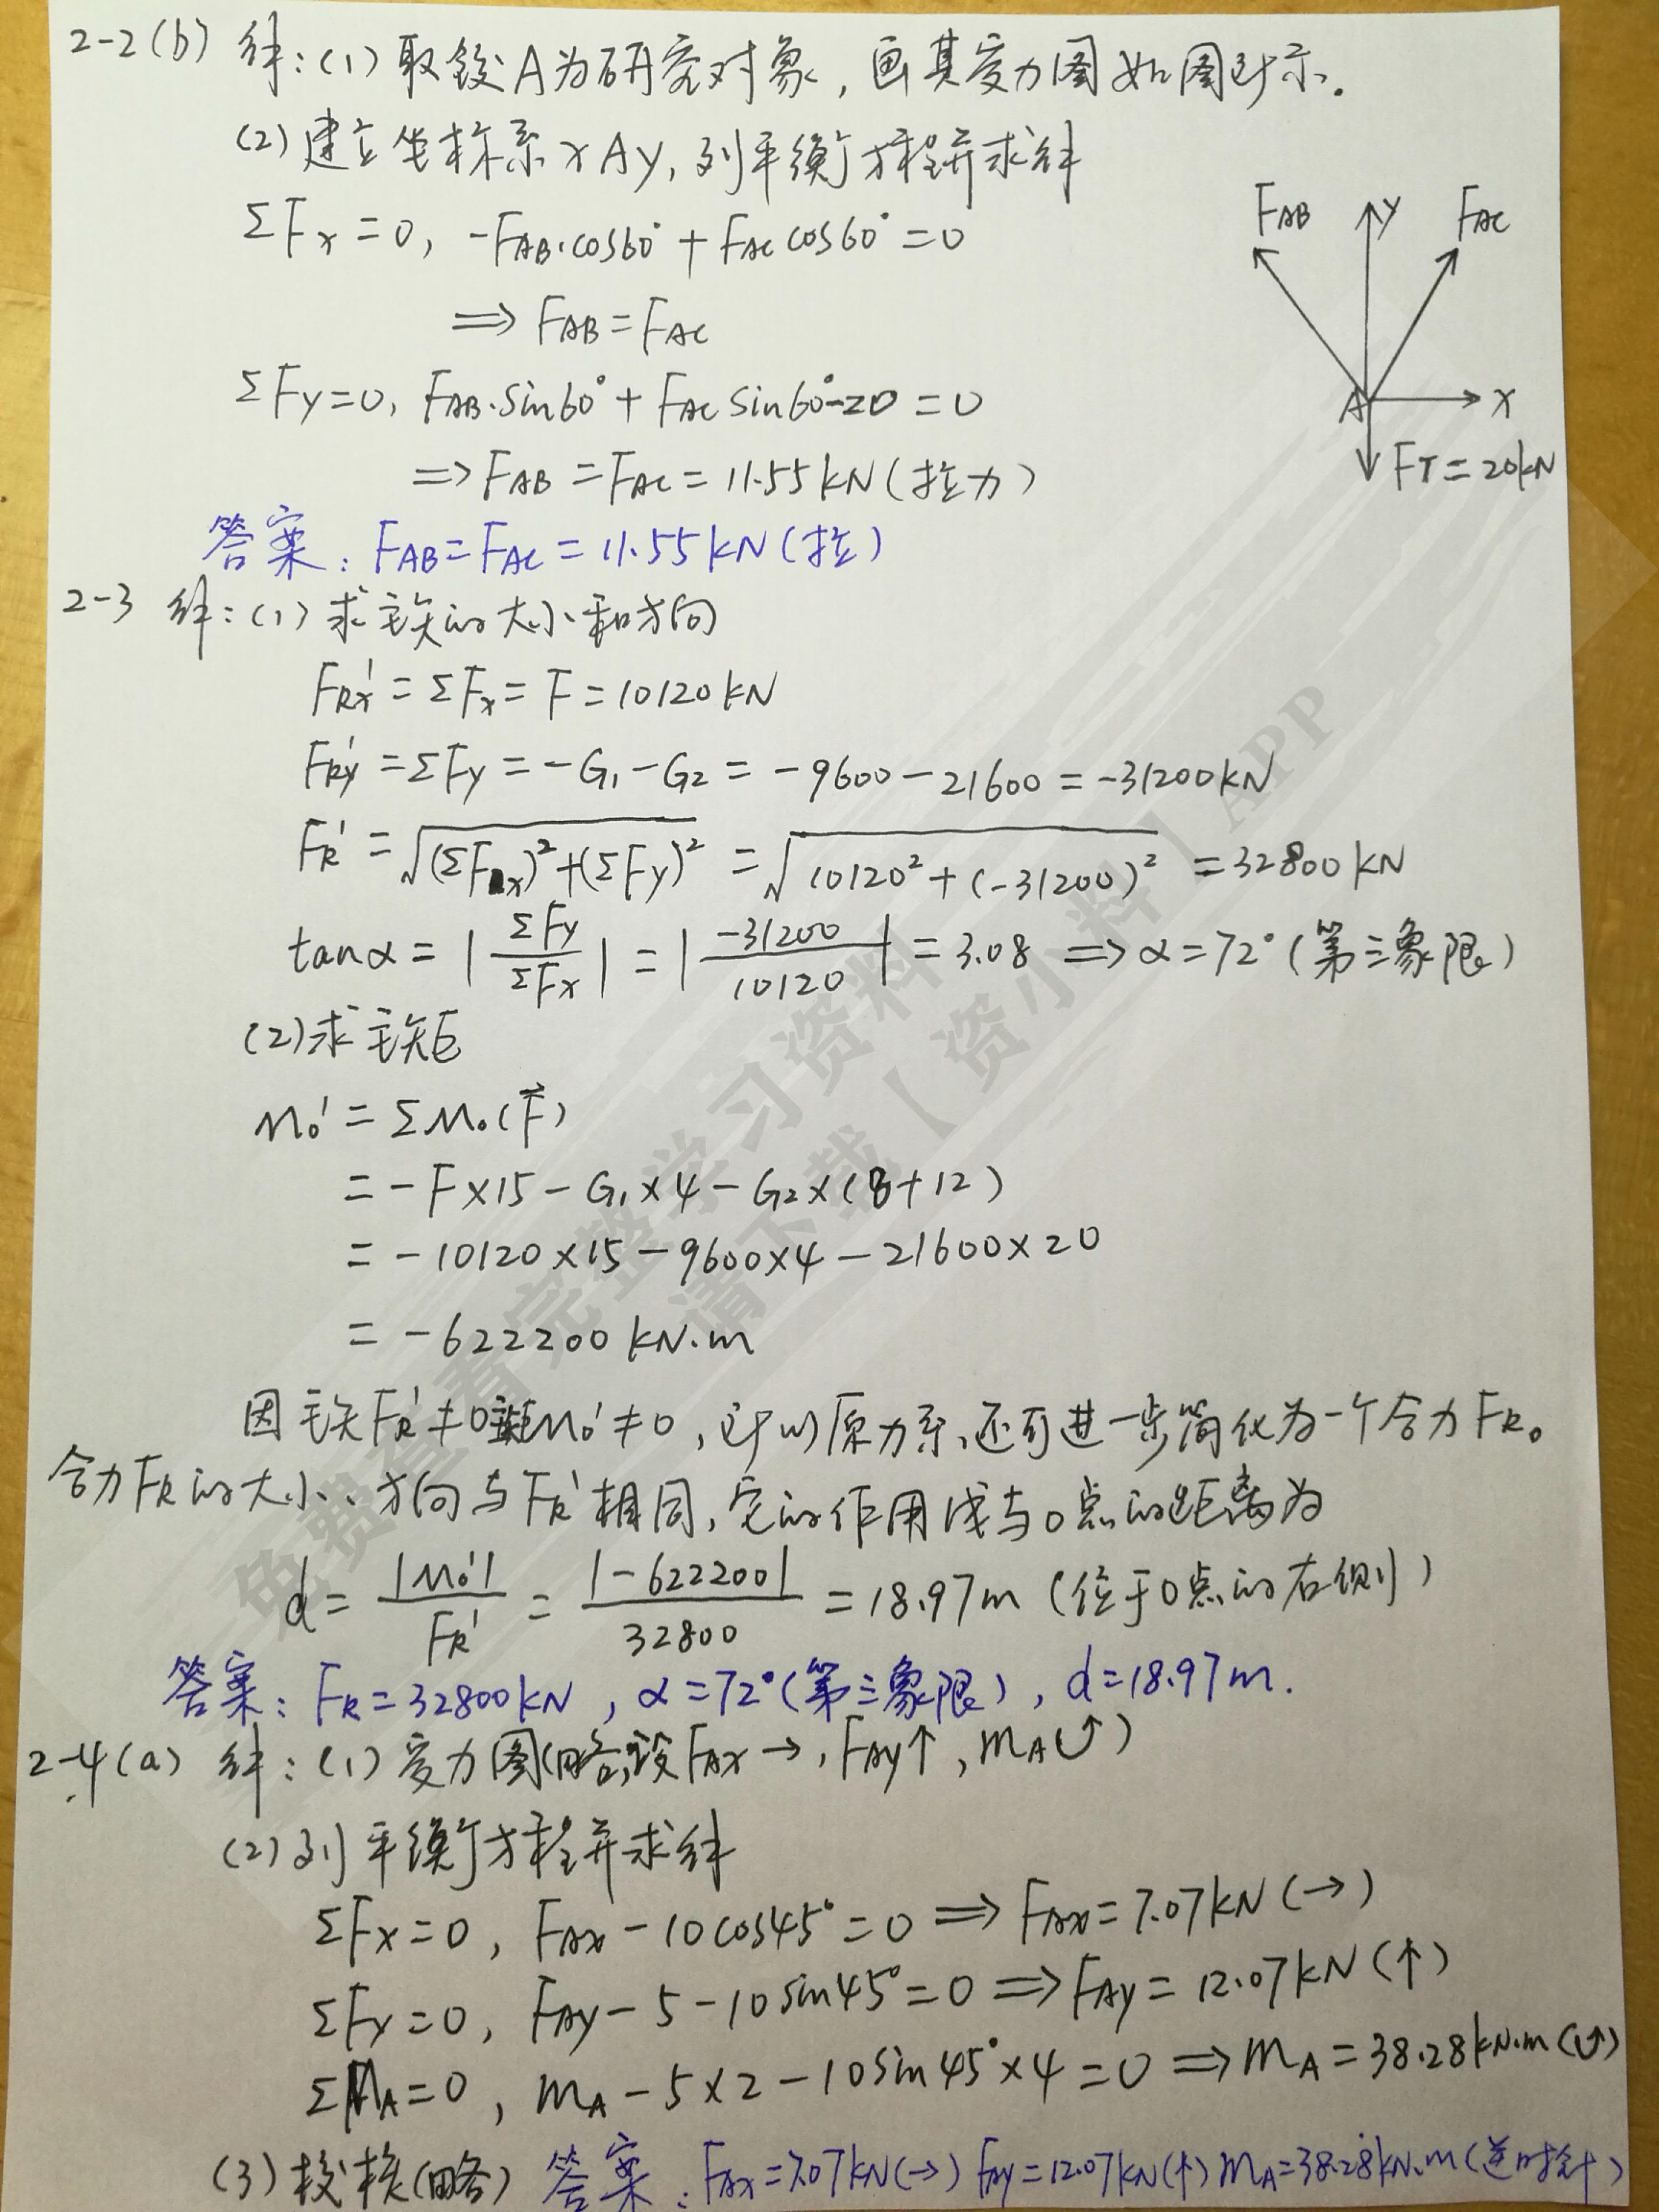 2-2(b) 解:(1)取铰A为研究对象,画其受力图如图所示.
(2)建立坐标系xAy,列平衡方程并求解
ΣFx=0, -FAB·cos60°+FAC cos60°=0
⟹ FAB=FAC
ΣFy=0, FAB·sin60°+FAC sin60°-20=0
⟹ FAB=FAC=11.55kN(拉力)
FAB
y
FAC
A
x
FT=20kN
答案:FAB=FAC=11.55kN(拉)
2-3 解:(1)求主矢的大小和方向
FRx'=ΣFx=F=10120kN
FRy'=ΣFy=-G1-G2=-9600-21600=-31200kN
FR'=√(ΣFx)²+(ΣFy)² =√10120²+(-31200)² =32800kN
tanα=|ΣFy/ΣFx|=|-31200/10120|=3.08 ⟹ α=72°(第三象限)
(2)求主矩
Mo'=ΣMo(F⃗)
=-F×15-G1×4-G2×(8+12)
=-10120×15-9600×4-21600×20
=-622200kN.m
因主矢FR'≠0主矩Mo'≠0,所以原力系还可进一步简化为一个合力FR。
合力FR的大小、方向与FR'相同,它的作用线与O点的距离为
d=|Mo'|/FR'=|-622200|/32800=18.97m(位于O点的右侧)
答案:FR=32800kN,α=72°(第三象限),d=18.97m.
2-4(a) 解:(1)受力图(略,设FAx→,FAy↑,mA↺)
(2)列平衡方程并求解
ΣFx=0, FAx-10cos45°=0 ⟹ FAx=7.07kN(→)
ΣFy=0, FAy-5-10sin45°=0 ⟹ FAy=12.07kN(↑)
ΣMA=0, mA-5×2-10sin45°×4=0 ⟹ mA=38.28kN.m(↺)
(3)校核(略) 答案:FAx=7.07kN(→) FAy=12.07kN(↑) mA=38.28kN.m(逆时针)
免费查看完整学习资料
请下载【资小料】APP